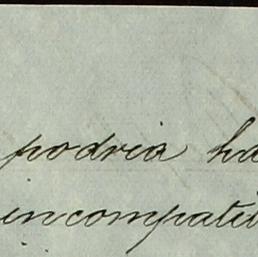 podria ha
incompati